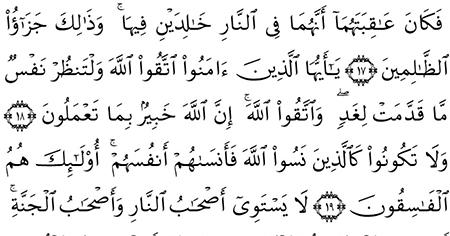 فَكَانَ عَـٰقِبَتَهُمَآ أَنَّهُمَا فِى ٱلنَّارِ خَـٰلِدَيْنِ فِيهَا ۚ وَذَٰلِكَ جَزَٰٓؤُا۟
ٱلظَّـٰلِمِينَ ﴿١٧﴾ يَـٰٓأَيُّهَا ٱلَّذِينَ ءَامَنُوا۟ ٱتَّقُوا۟ ٱللَّهَ وَلْتَنظُرْ نَفْسٌ
مَّا قَدَّمَتْ لِغَدٍ ۖ وَٱتَّقُوا۟ ٱللَّهَ ۚ إِنَّ ٱللَّهَ خَبِيرٌۢ بِمَا تَعْمَلُونَ ﴿١٨﴾
وَلَا تَكُونُوا۟ كَٱلَّذِينَ نَسُوا۟ ٱللَّهَ فَأَنسَىٰهُمْ أَنفُسَهُمْ ۚ أُو۟لَـٰٓئِكَ هُمُ
ٱلْفَـٰسِقُونَ ﴿١٩﴾ لَا يَسْتَوِىٓ أَصْحَـٰبُ ٱلنَّارِ وَأَصْحَـٰبُ ٱلْجَنَّةِ ۚ